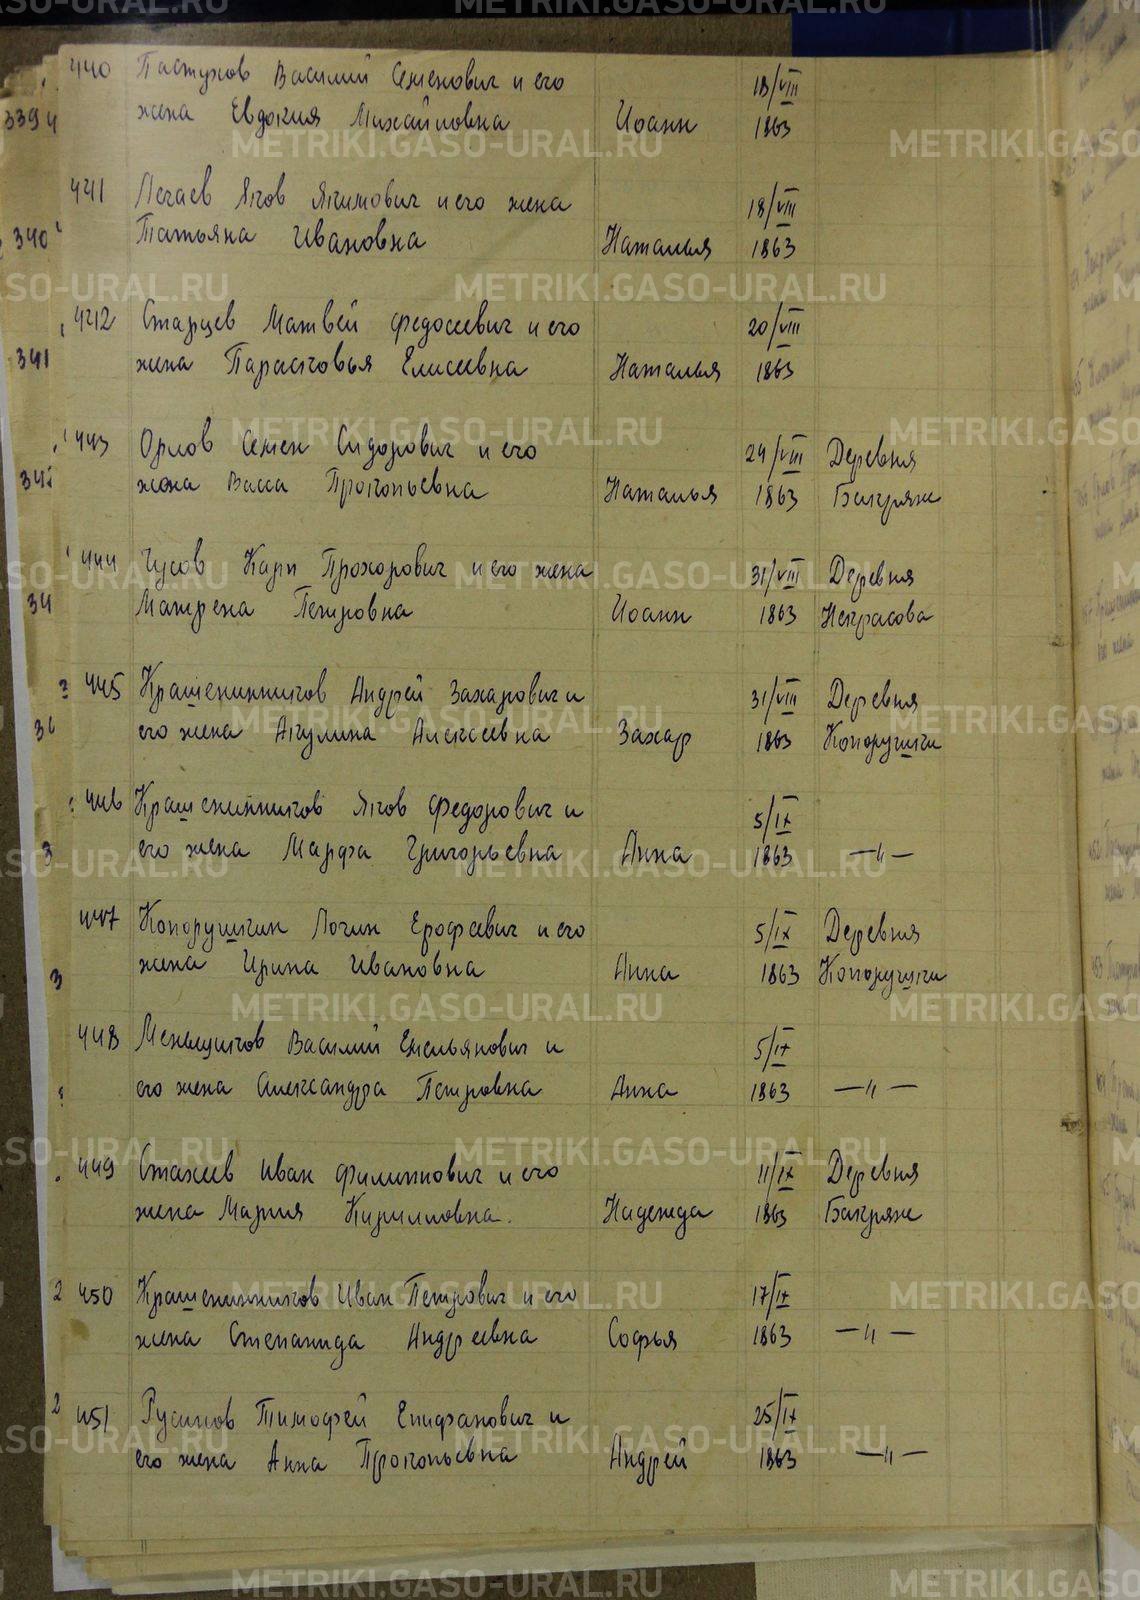 440 Пастухов Василий Семенович и его
жена Евдокия Михайловна Иоанн 18/VIII 1863
339
441 Пегаев Яков Якимович и его жена
Татьяна Ивановна Наталья 18/VIII 1863
340
442 Старцев Матвей Федосеевич и его
жена Парасковья Елисеевна Наталья 20/VIII 1863
341
443 Орлов Семен Сидорович и его
жена Васса Прокопьевна Наталья 24/VIII 1863 Деревня Бакряж
342
444 Чусов Карп Прохорович и его жена
Матрена Петровна Иоанн 31/VIII 1863 Деревня Некрасова
34
445 Крашенинников Андрей Захарович и
его жена Акулина Алексеевна Захар 31/VIII 1863 Деревня Копорушки
3
446 Крашенинников Яков Федорович и
его жена Марфа Григорьевна Анна 5/IX 1863 —〃—
3
447 Копорушкин Логин Ерофеевич и его
жена Ирина Ивановна Анна 5/IX 1863 Деревня Копорушки
3
448 Меньшиков Василий Емельянович и
его жена Александра Петровна Анна 5/IX 1863 —〃—
449 Стахеев Иван Филиппович и его
жена Мария Кирилловна. Надежда 11/IX 1863 Деревня Бакряж
2 450 Крашенинников Иван Петрович и его
жена Степанида Андреевна Софья 17/IX 1863 —〃—
2 451 Русинов Тимофей Епифанович и
его жена Анна Прокопьевна Андрей 25/IX 1863 —〃—
METRIKI.GASO-URAL.RU